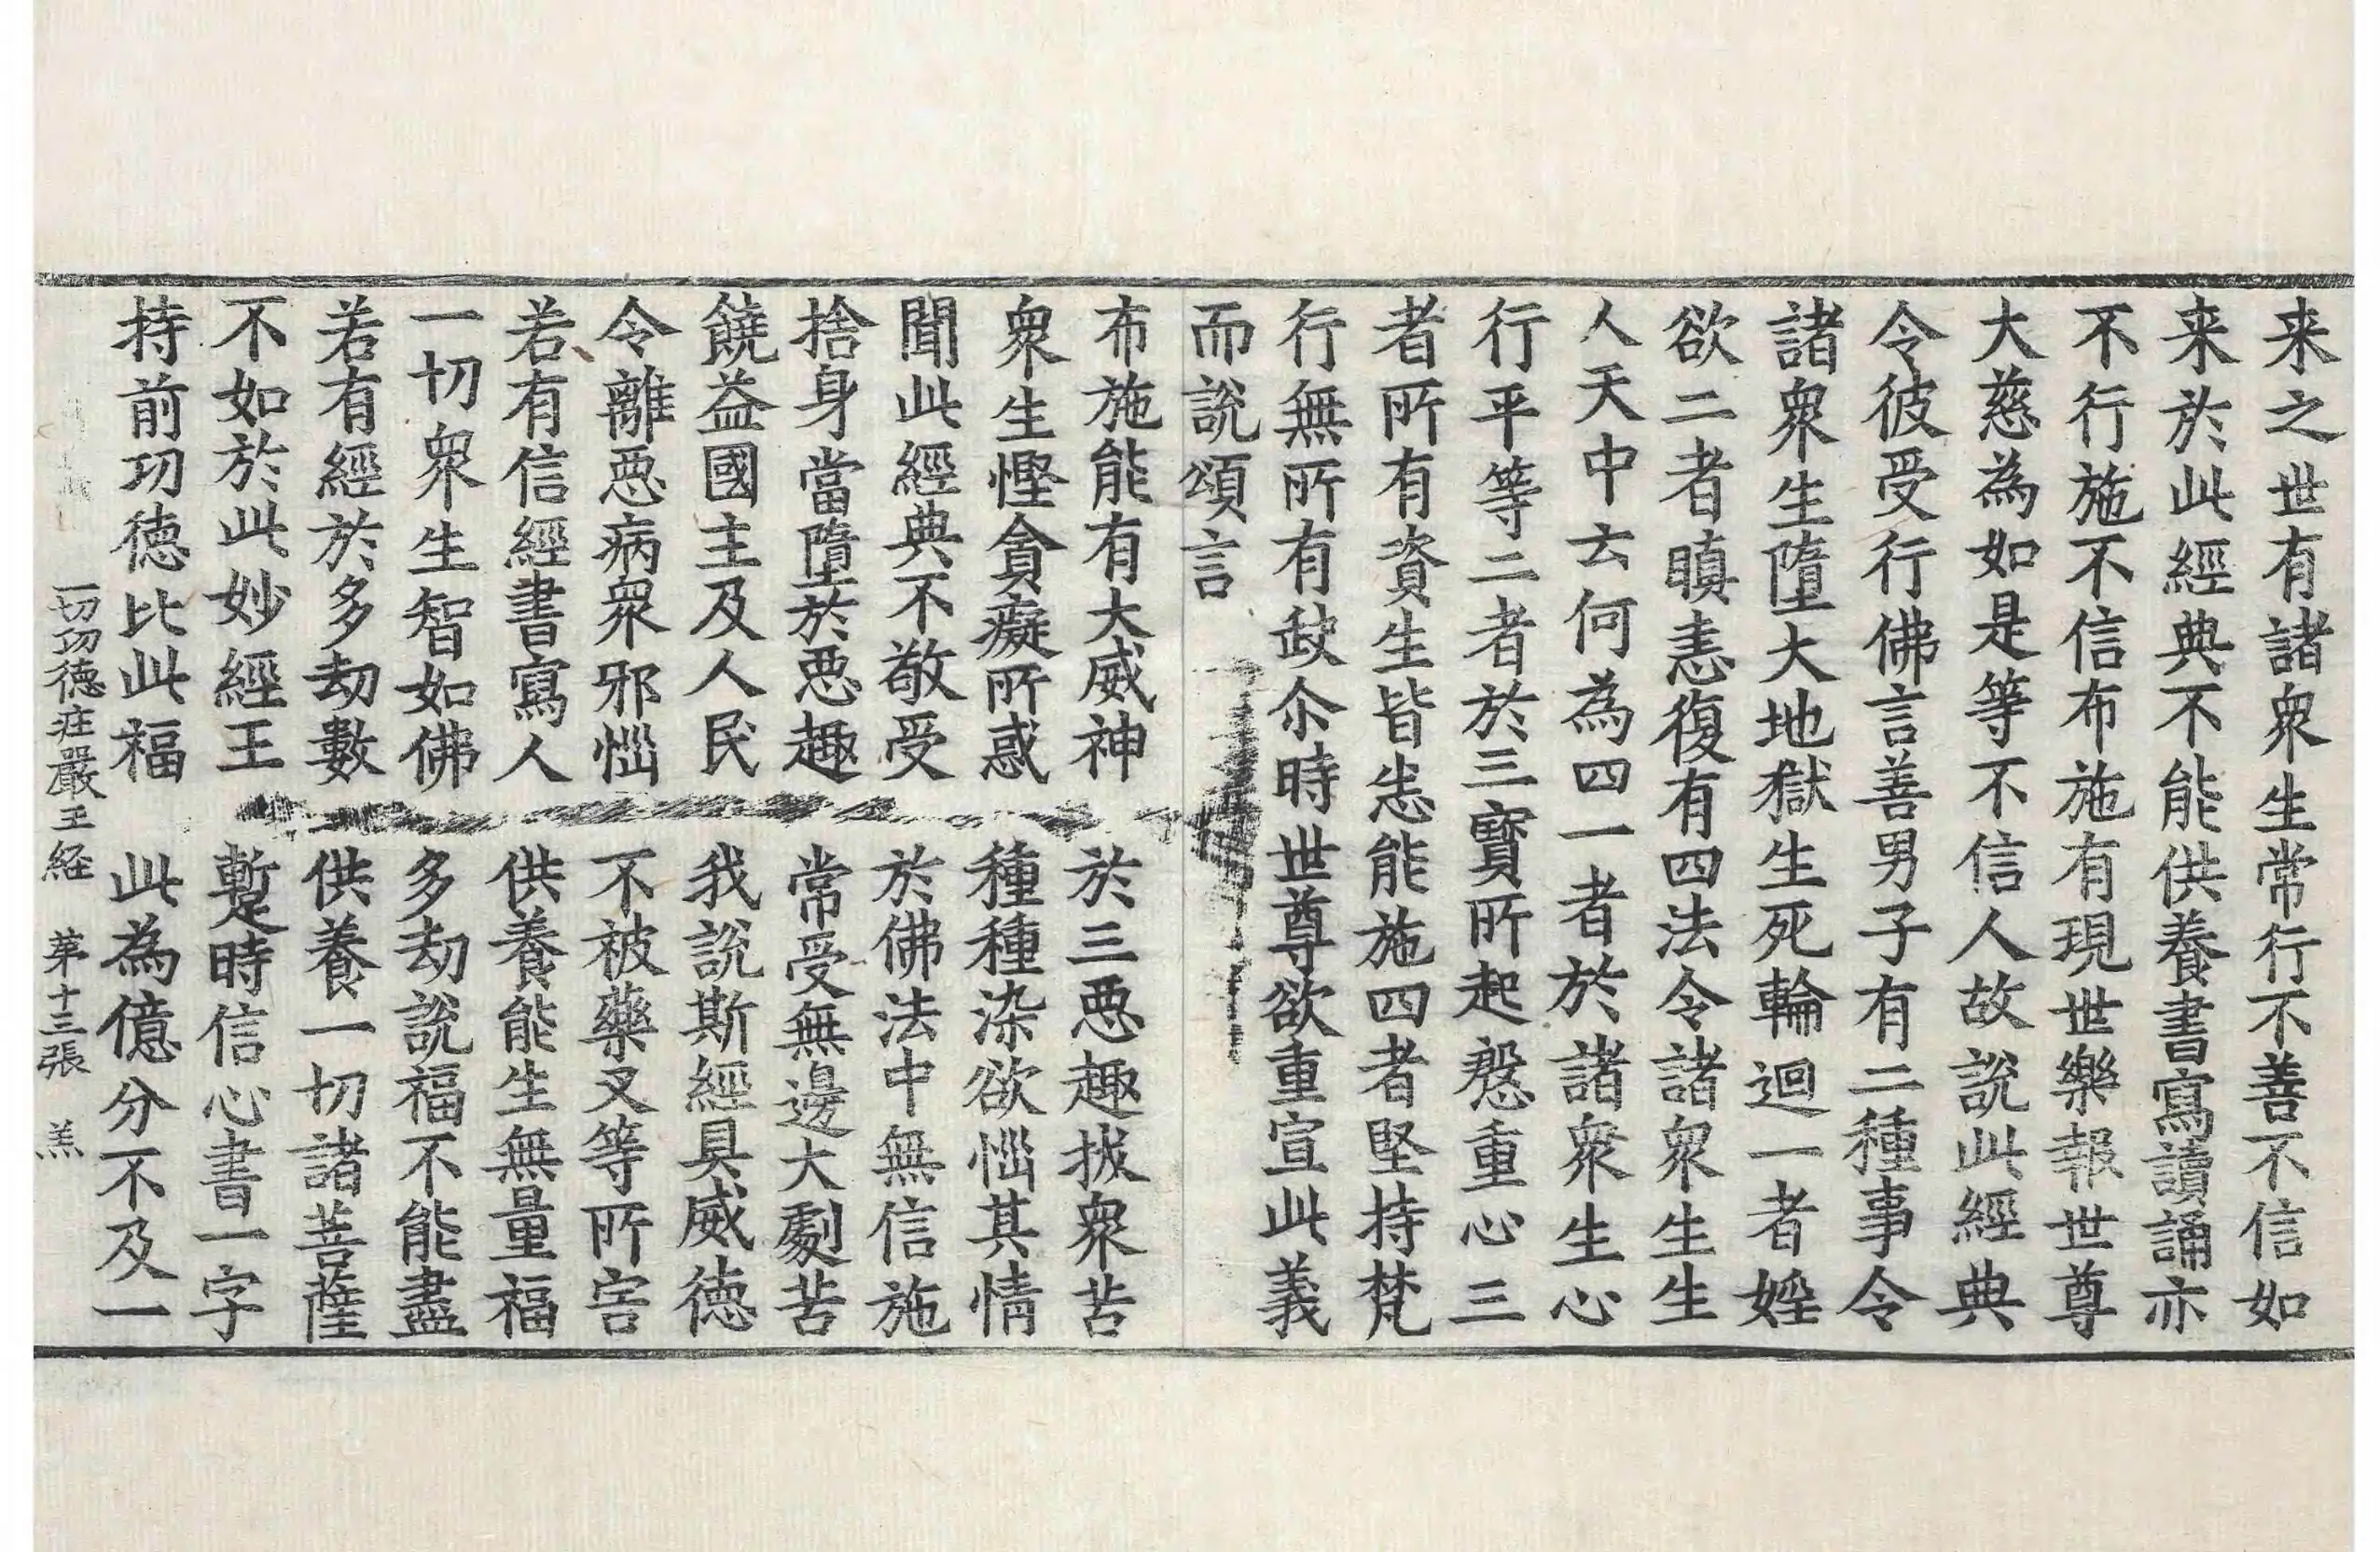 来之世有諸衆生常行不善不信如
来於此經典不能供養書寫讀誦亦
不行施不信布施有現世樂報世尊
大慈為如是等不信人故說此經典
令彼受行佛言善男子有二種事令
諸衆生墮大地獄生死輪迴一者婬
欲二者瞋恚復有四法令諸衆生生
人天中云何為四一者於諸衆生心
行平等二者於三寶所起慇重心三
者所有資生皆恙能施四者堅持梵
行無所有𡙇尒時世尊欲重宣此義
而說頌言
布施能有大威神　於三惡趣拔衆苦
衆生慳貪癡所惑　種種染欲惱其情
聞此經典不敬受　於佛法中無信施
捨身當墮於惡趣　常受無邊大劇苦
饒益國主及人民　我說斯經具威德
令離惡病衆邪惱　不被藥叉等所害
若有信經書寫人　供養能生無量福
一切衆生智如佛　多劫說福不能盡
若有經於多劫數　供養一切諸菩薩
不如於此妙經王　蹔時信心書一字
持前功德比此福　此為億分不及一
一切功德庄嚴王経　苐十三張　羔